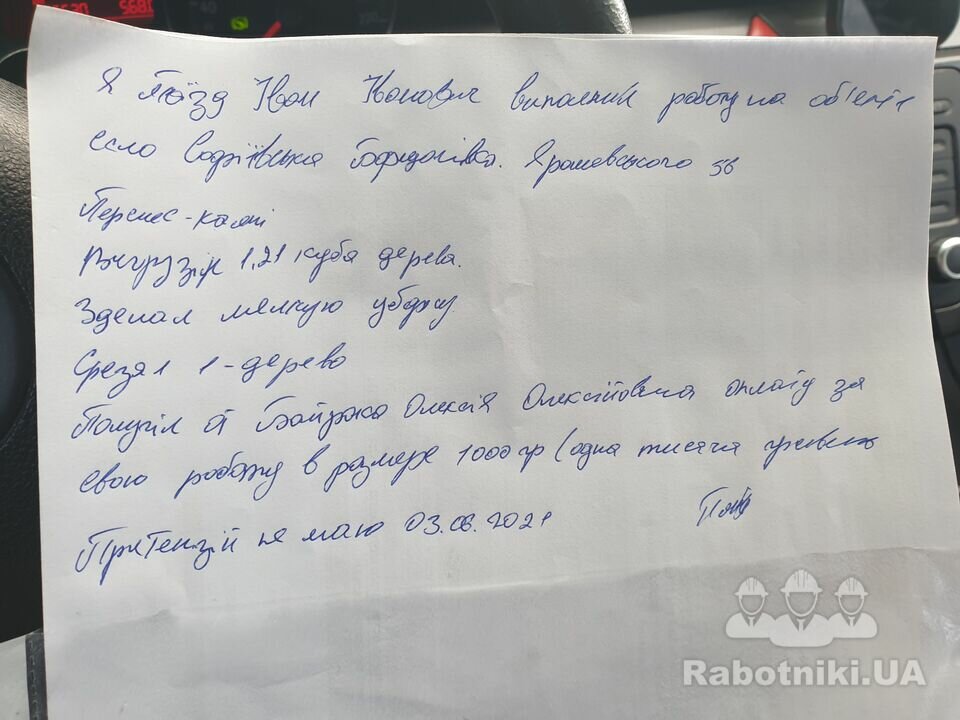 Я Поїзд Іван Іванович виполнил работу на об'екті
село Софіївська Борщагівка. Ярошевського 5в
Перенес-камні
Вигрузіл 1,21 куба дерева.
Зделал мелкую уборку
Срезал 1-дерево
Получіл от Олексія Олексійовича оплату за
свою роботу в размере 1000 гр (одна тисяча гривень
Притензій не маю 03.08.2021
Rabotniki.UA